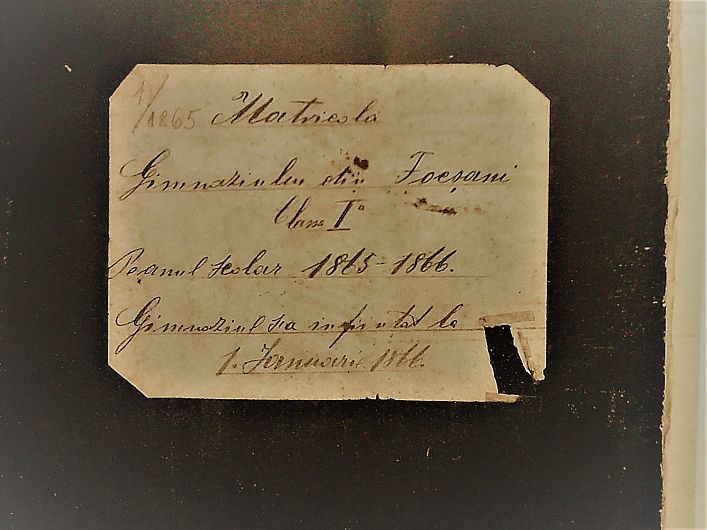 1/1865 Matricola
Gimnaziului din Focșani
Classa Iª
Pe anul scolar 1865-1866.
Gimnaziul s'a infiintat la
1. Ianuarie 1866.